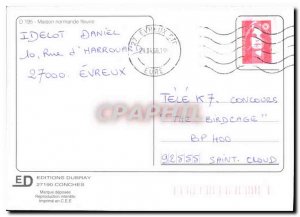 D 195 - Maison normande fleurie
IDELOT DANIEL
10, Rue d'HARROUARD
27000 EVREUX
27 EVREUX
EURE
TÉLÉ K7. CONCOURS
"THE BIRDCAGE"
BP 400
92555 SAINT. CLOUD
CPArama
ED
EDITIONS DUBRAY
27190 CONCHES
Marque déposée
Reproduction interdite
Imprimé en C.E.E.